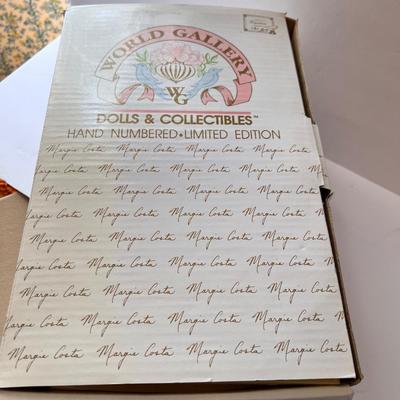 WORLD GALLERY
WG
DOLLS & COLLECTIBLES™
HAND NUMBERED • LIMITED EDITION
Margie Costa Margie Costa Margie Costa Margie Costa
Costa Margie Costa Margie Costa Margie Costa Margie
Margie Costa Margie Costa Margie Costa Margie Costa
Costa Margie Costa Margie Costa Margie Costa Margie
Margie Costa Margie Costa Margie Costa Margie Costa
Costa Margie Costa Margie Costa Margie Costa Margie
Margie Costa Margie Costa Margie Costa Margie Costa
Costa Margie Costa Margie Costa Margie Costa Margie
Margie Costa Margie Costa Margie Costa Margie Costa